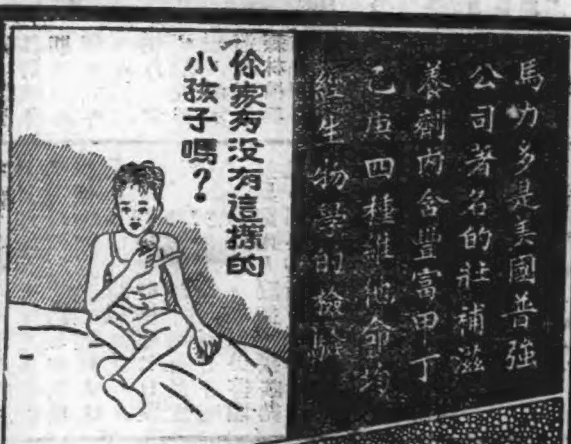 馬力多是美國普強
公司著名的壯補滋
養劑內含豐富甲丁
乙庚四種維他命均
經生物學的檢驗
你家有没有這樣的
小孩子嗎？